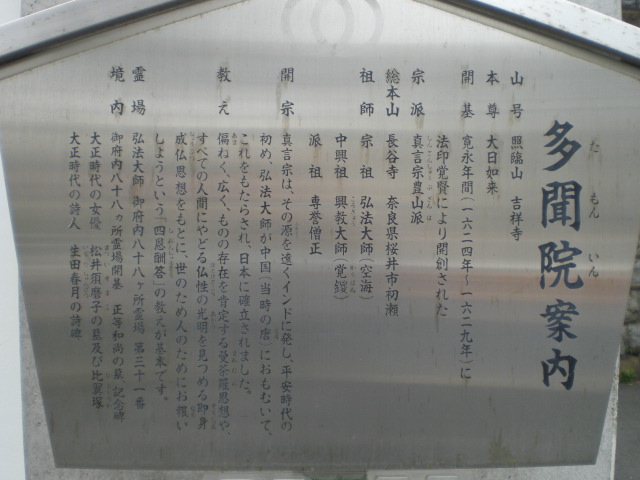 多聞院案内
た もん いん
山号 照臨山 吉祥寺
本尊 大日如来
開基 寛永年間(一六二四年〜一六二九年)に
法印覚賢により開創された
宗派 真言宗豊山派
しんごんしゅうぶざんは
総本山 長谷寺 奈良県桜井市初瀬
祖師 宗祖 弘法大師(空海)
中興祖 興教大師(覚鑁)
派祖 専誉僧正
開宗 真言宗は、その源を遠くインドに発し、平安時代の
初め、弘法大師が中国(当時の唐)におもむいて、
これをもたらされ、日本に確立されました。
教え 偏ねく、広く、ものの存在を肯定する曼荼羅思想や、
すべての人間にやどる仏性の光明を見つめる即身
成仏思想をもとに、世のため人のためにお報い
しようという「四恩酬答」の教えが基本です。
霊場 弘法大師 御府内八十八ヶ所霊場 第三十一番
境内 御府内八十八ヵ所霊場開基 正等和尚の墓、記念碑
大正時代の女優 松井須磨子の墓及び比翼塚
大正時代の詩人 生田春月の詩碑